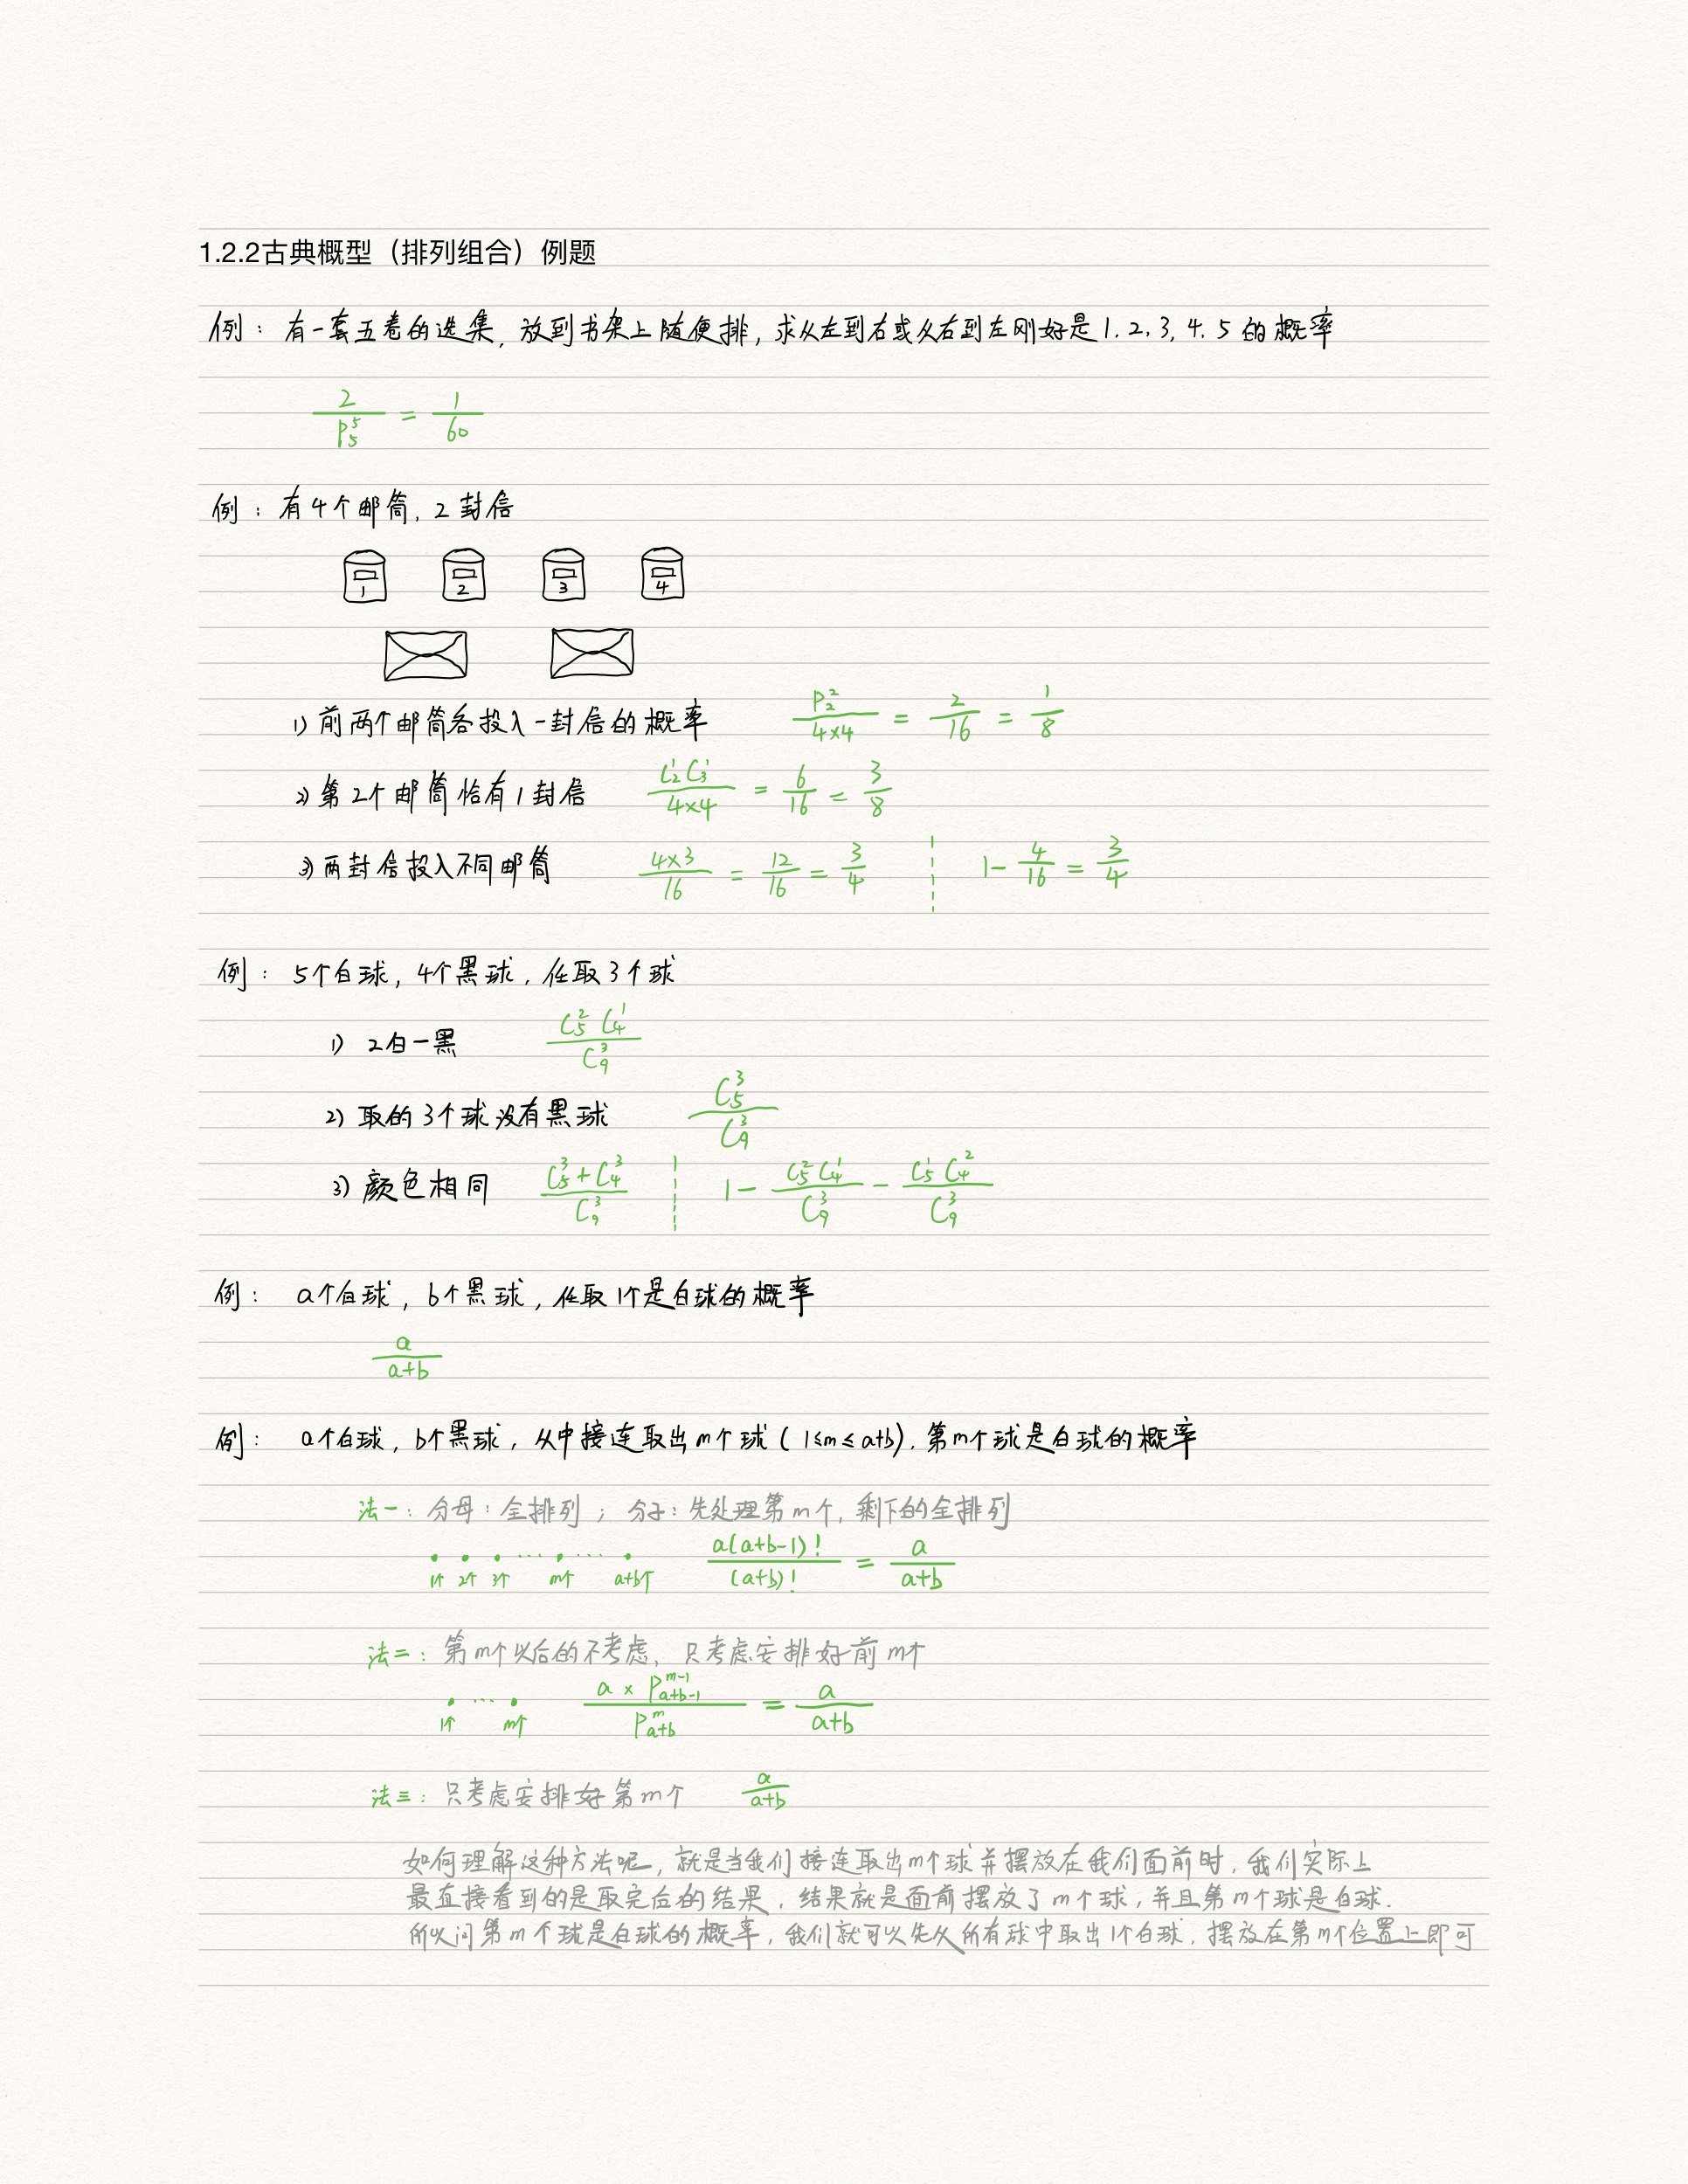 1.2.2古典概型（排列组合）例题
例：有一套五卷的选集，放到书架上随便排，求从左到右或从右到左刚好是1.2.3.4.5的概率
2/P₅⁵ = 1/60
例：有4个邮筒，2封信
1 2 3 4
1) 前两个邮筒各投入一封信的概率 P₂²/(4×4) = 2/16 = 1/8
2) 第2个邮筒恰有1封信 C₂¹C₃¹/(4×4) = 6/16 = 3/8
3) 两封信投入不同邮筒 (4×3)/16 = 12/16 = 3/4 1-4/16 = 3/4
例：5个白球，4个黑球，任取3个球
1) 2白一黑 C₅²C₄¹/C₉³
2) 取的3个球没有黑球 C₅³/C₉³
3) 颜色相同 (C₅³+C₄³)/C₉³ 1 - C₅²C₄¹/C₉³ - C₅¹C₄²/C₉³
例：a个白球，b个黑球，任取1个是白球的概率
a/(a+b)
例：a个白球，b个黑球，从中接连取出m个球（1≤m≤a+b），第m个球是白球的概率
法一：分母：全排列；分子：先处理第m个，剩下的全排列
1个 2个 3个 … m个 … a+b个 a(a+b-1)!/(a+b)! = a/(a+b)
法二：第m个以后的不考虑，只考虑安排好前m个
1个 … m个 (a×P_{a+b-1}^{m-1})/P_{a+b}^{m} = a/(a+b)
法三：只考虑安排好第m个 a/(a+b)
如何理解这种方法呢，就是当我们接连取出m个球并摆放在我们面前时，我们实际上
最直接看到的是取完后的结果，结果就是面前摆放了m个球，并且第m个球是白球.
所以问第m个球是白球的概率，我们就可以先从所有球中取出1个白球，摆放在第m个位置上即可